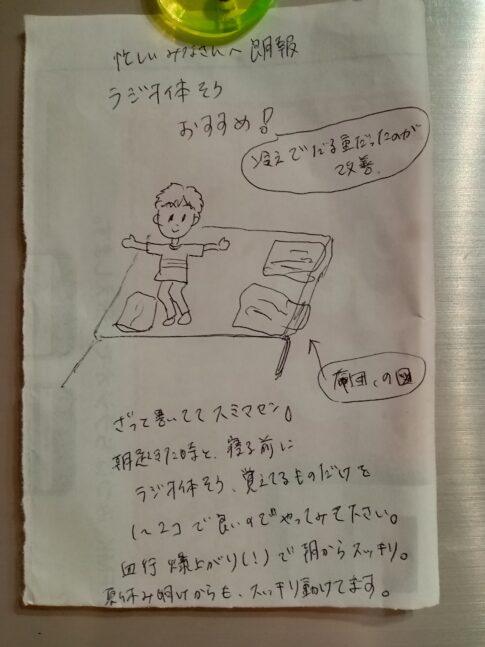 忙しいみなさんへ 朗報
ラジオ体そう
おすすめ!
冷えでだる重だったのが
改善。
布団、の図
ざって書いててスミマセン。
朝起きた時と、寝る前に
ラジオ体そう、覚えてるものだけを
1~2コで良いのでやってみて下さい。
血行爆上がり(!)で朝からスッキリ。
夏休み明けからも、スッキリ動けてます。